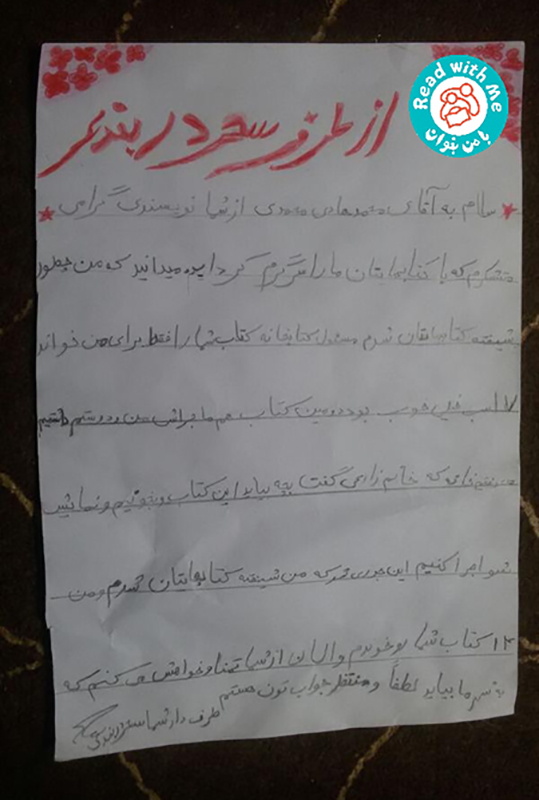 Read with Me
با من بخوان
از طرف سحر دربندی
سلام به آقای محمدهادی محمدی از شما نویسندی گرامی
متشکرم که با کتابهایتان ما را سرگرم کرد اید میدانید که من چطور
شیفته کتابهایتان شدم مسئول کتابخانه کتاب شما را فقط برای من خواند
خیلی خوب بود دومین کتاب هم ماجرای من و دوستم
که خانم زارعی گفت بچه بیاید این کتاب و بخونیم و نمایش
شو اجرا کنیم این جوری شد که من شیفته کتابهایتان شدم و من
۱۲ کتاب شما رو خوندم و الان از شما تمنا و خواهش می کنم که
به شهر ما بیاید لطفاً و منتظر جواب تون هستم
طرف دار شما سحر دربندی